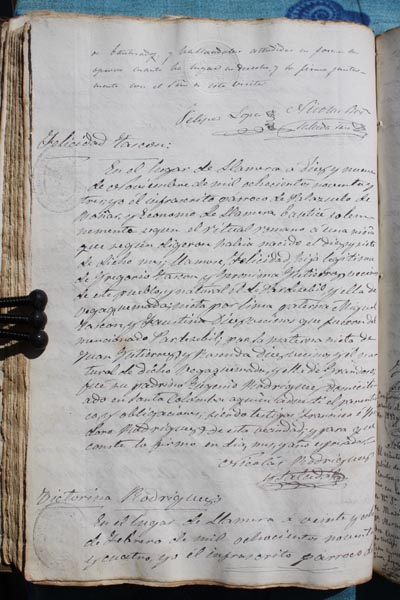 o bautizados, y hallandolas estendidas en forma las
apruevo cuanto ha lugar en derecho, y lo firma junta-
mente con el Sr. de esta visita
Felipe Lopez Nicolas
Felicidad Tascon:
En el lugar de Llamera a diez y nueve
de Noviembre de mil ochocientos noventa y
tres yo el infrascrito parroco de Palazuelo de
Boñar, y Economo de Llamera bautice solem-
nemente segun el ritual romano a una niña
que segun digeron habia nacido el diez y siete
de dicho mes, llamese Felicidad, hija legitima
de Gregorio Tascon y Geronima Gutierrez vecinos
de este pueblo y natural el de y ella de
Vegaquemada; nieta por linea paterna Miguel
Tascon y Faustina Diez vecinos que fueron del
mencionado por la materna nieta de
Juan Gutierrez y Diez, vecinos y el na-
tural de dicho Vegaquemada, y ella de Grandoso,
fue su padrino Eugenio Rodriguez, domicili-
ado en Santa Colomba a quien advertí el parentes-
co, y obligaciones, siendo testigos Francisco é Ysi-
doro Rodriguez, de esta vecindad; y para que
conste lo firmo en dia, mes, y año espresados.
Nicolas Rodriguez
Victorina Rodriguez
En el lugar de Llamera a veinte y
de Febrero de mil ochocientos noventa
y cuatro, yo el infrascrito parroco de